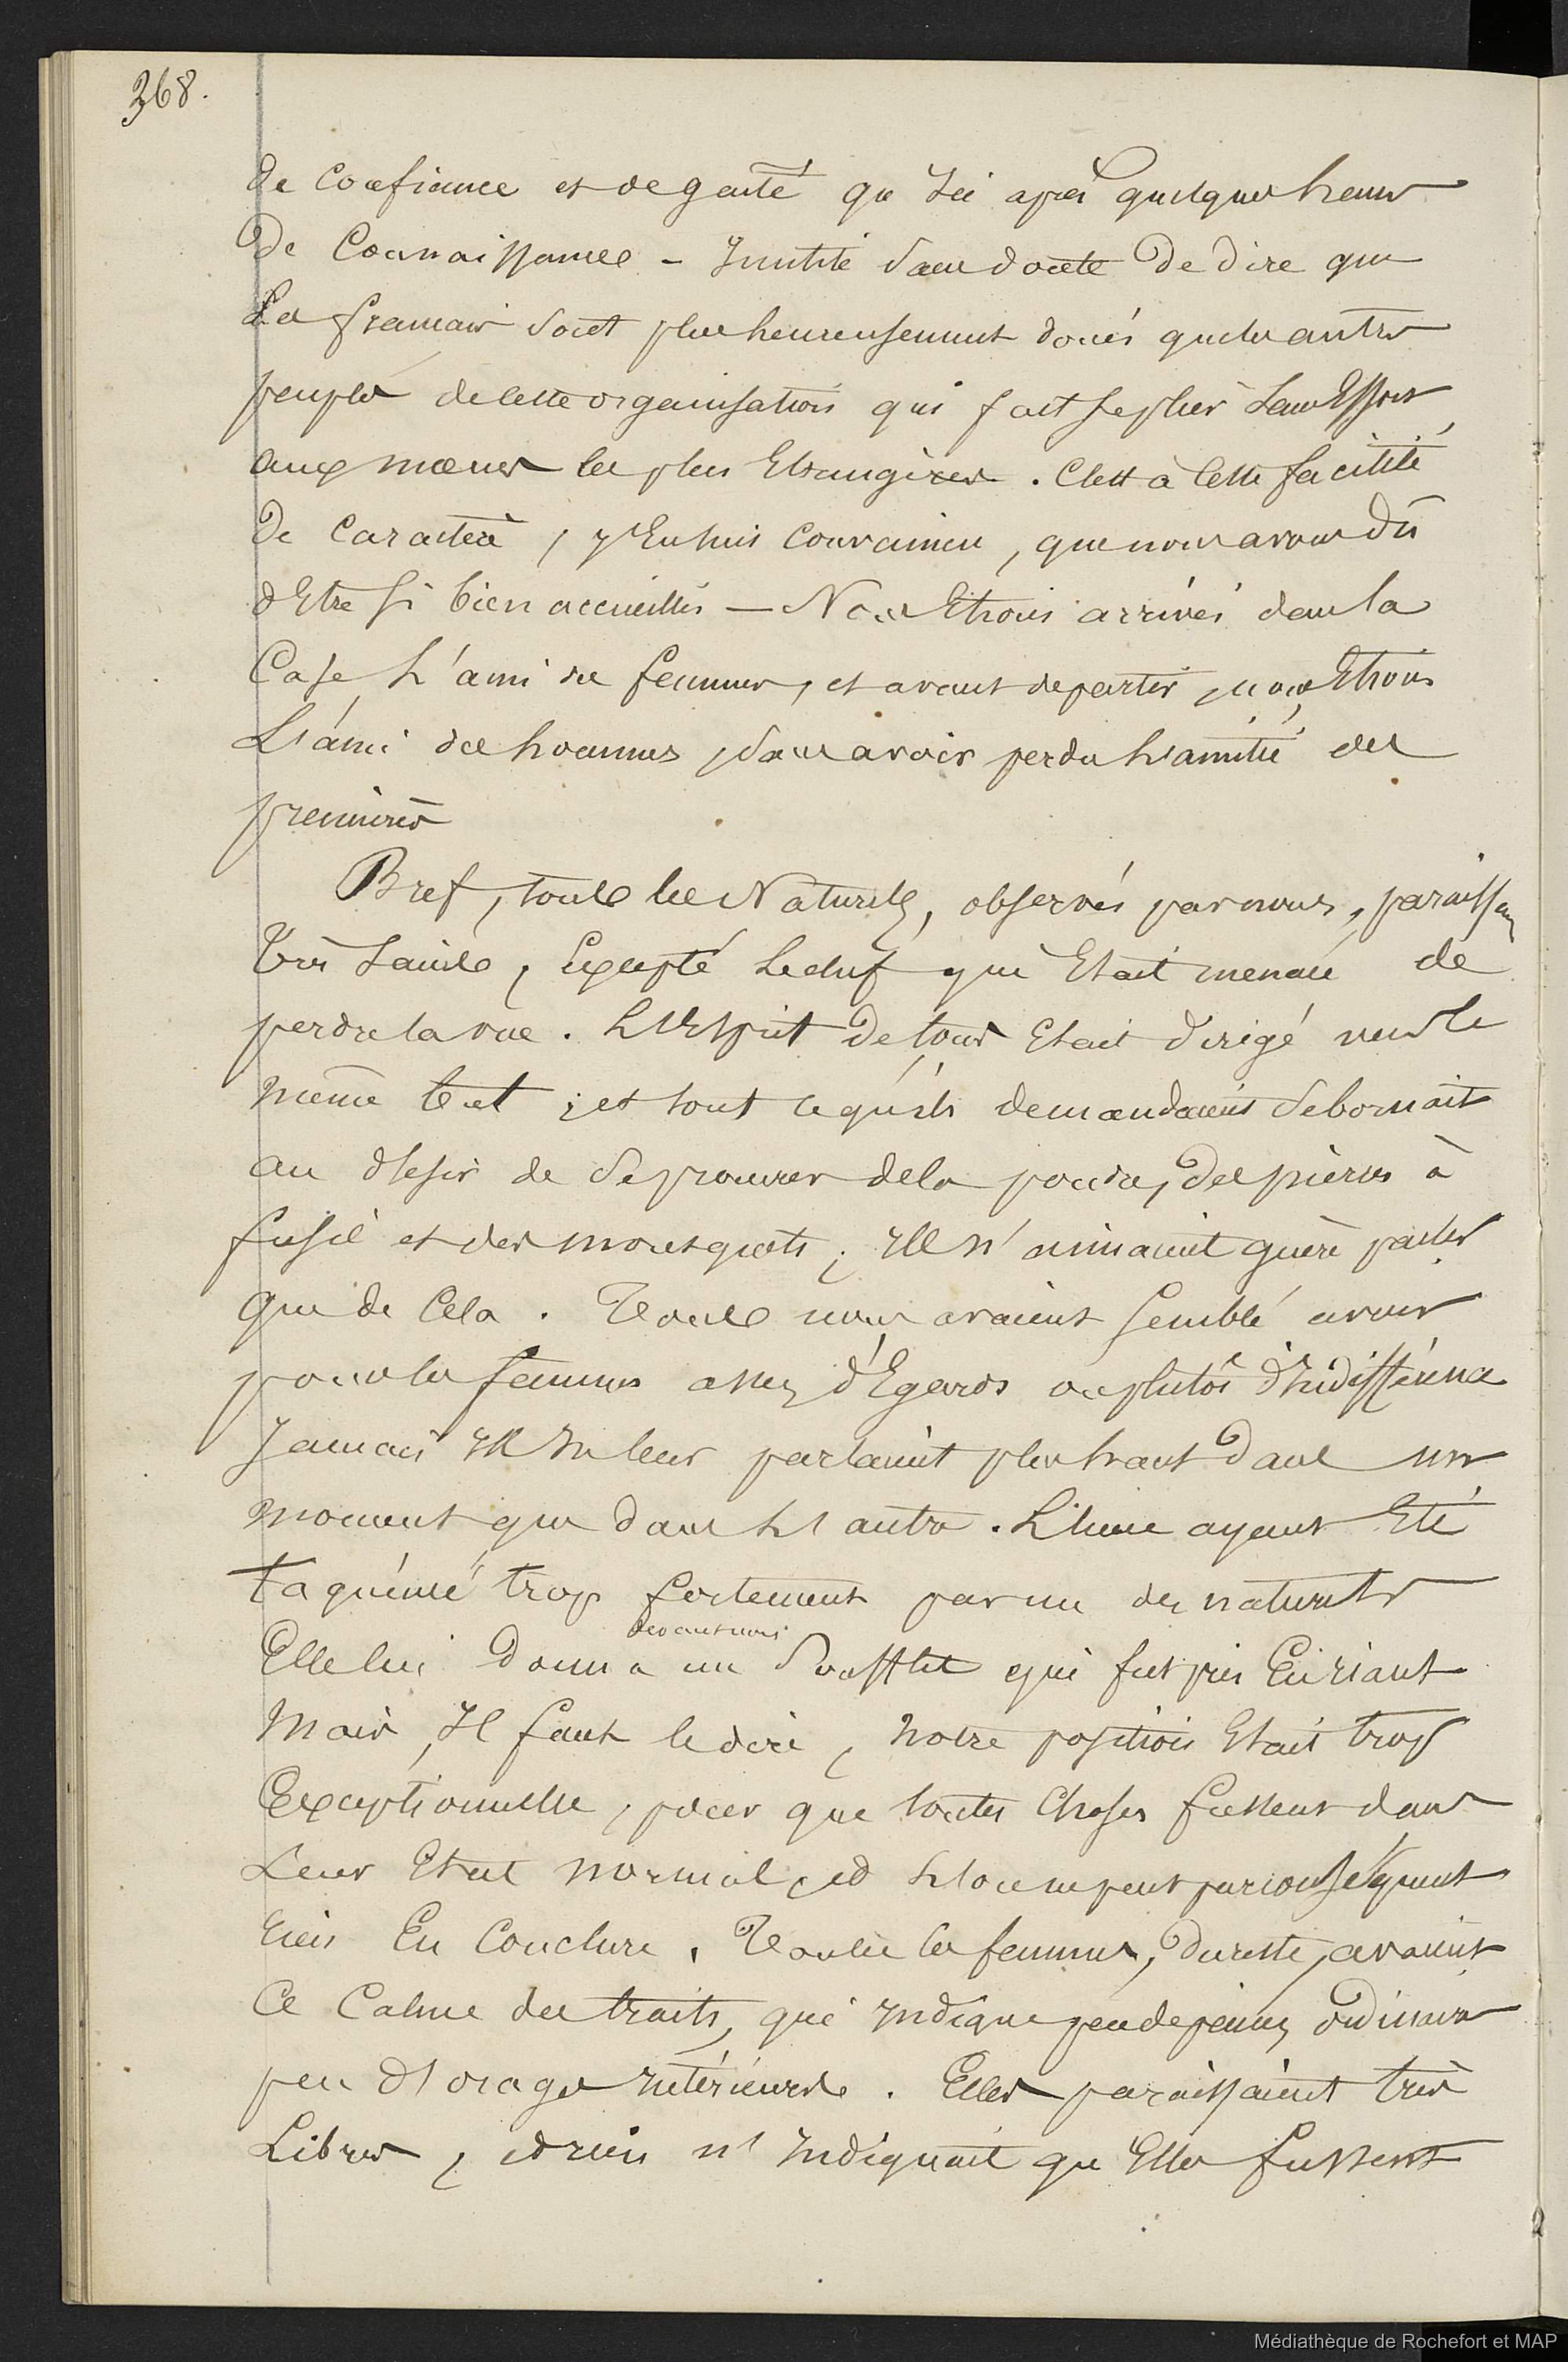 368.
de Confiance et de gaité qu'Ici après quelques heures
de Connaissance - Inutile sans doute de dire que
Les français sont plus heureusement doués que les autres
peuples de cette organisation qui fait se plier sans Effort
aux mœurs les plus Etrangères. C'est à cette facilité
de Caractère, j'En suis Convaincu, que nous avons dû
d'Etre si bien accueillis — Nous Etions arrivés dans la
Case L'ami des femmes, et avant de partir, nous Etions
L'ami des hommes, sans avoir perdu L'amitié des
premières
Bref, tous les Naturels, observés par nous, paraissen
très Sains, Excepté Le chef qui Etait menacé de
perdre la vue. L'Esprit de tous Etait dirigé vers le
même but ; et tout ce qu'ils demandaient se bornait
au désir de se procurer de la poudre, des pierres à
fusil et des mousquets ; Ils n'aimaient guère parler
que de Cela. Tous nous avaient semblé avoir
pour les femmes assez d'Egards ou plutôt d'Indifférence
Jamais Ils ne leur parlaient plus haut dans un
moment que dans L'autre. L'une ayant Eté
taquinée trop fortement par un des naturels
devant nous
Elle lui donna un Soufflet qui fut pris En riant
Mais, Il faut le dire, notre position Etait trop
Exceptionnelle, pour que toutes Choses fussent dans
Leur Etat normal, et L'on ne peut par conséquent
rien En Conclure. Toutes les femmes, du reste, avaient
Ce Calme des traits, qui Indique peu de peines ordinaires
peu d'orages Intérieurs. Elles paraissaient très
Libres, et rien n'Indiquait qu'Elles fussent
Médiathèque de Rochefort et MAP